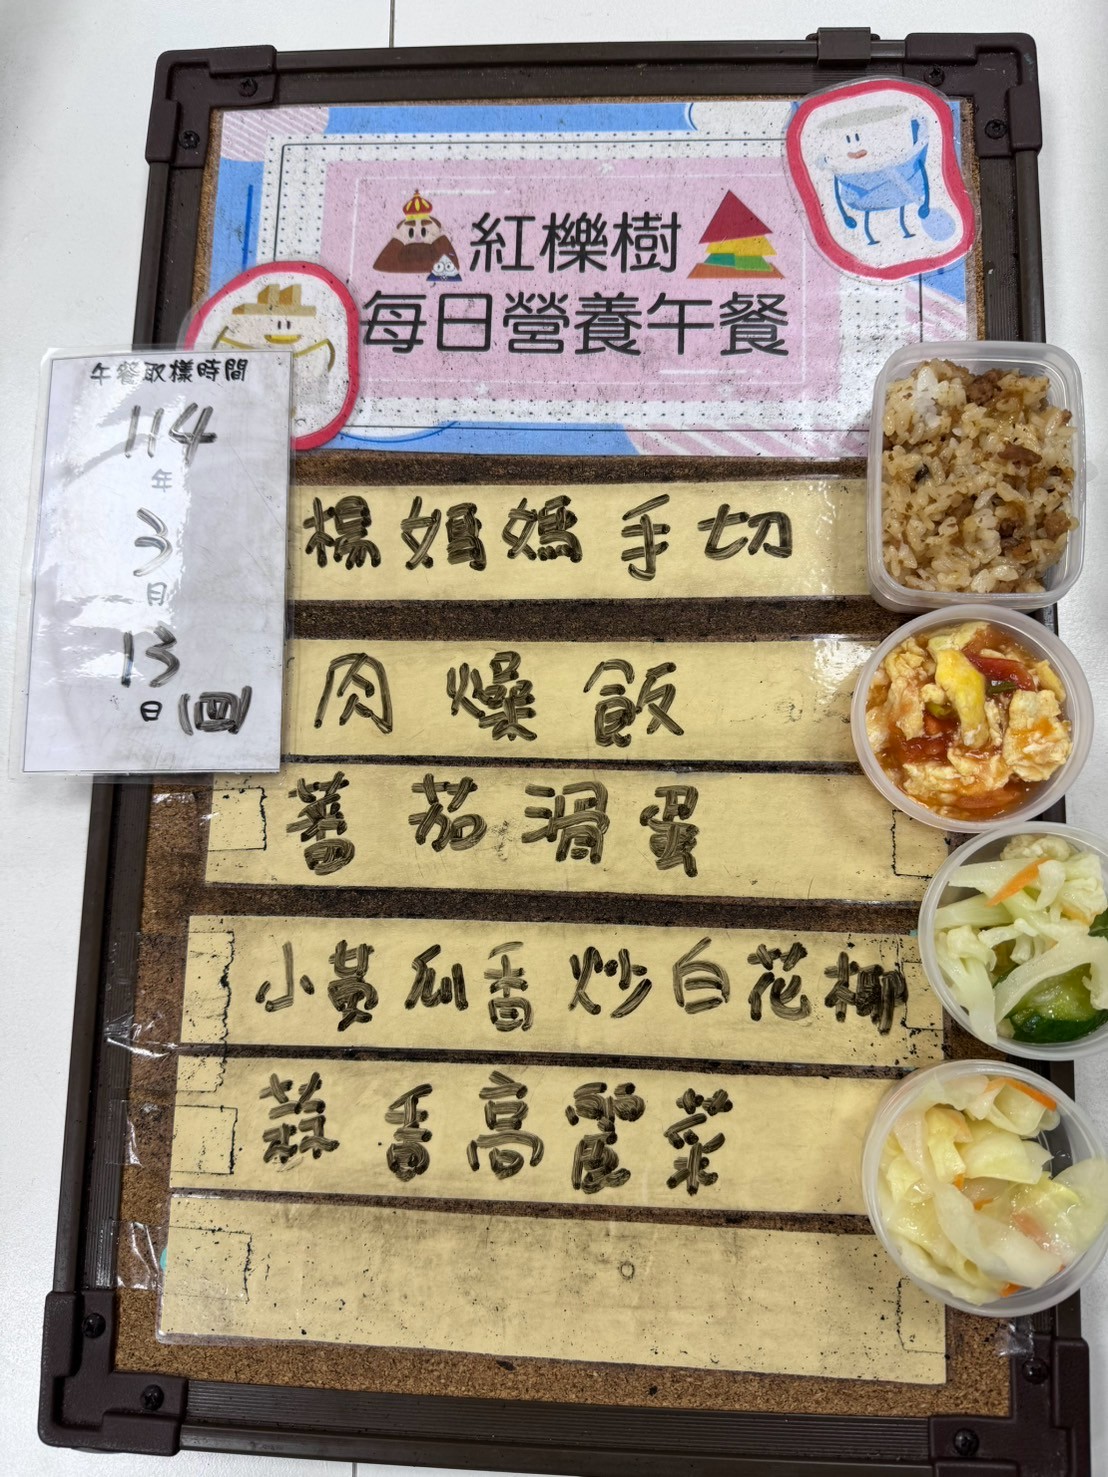 紅櫟樹
每日營養午餐
午餐取樣時間
114
年
3
月
13
日(四)
楊媽媽手切
肉燥飯
蕃茄滑蛋
小黃瓜香炒白花椰
蒜香高麗菜